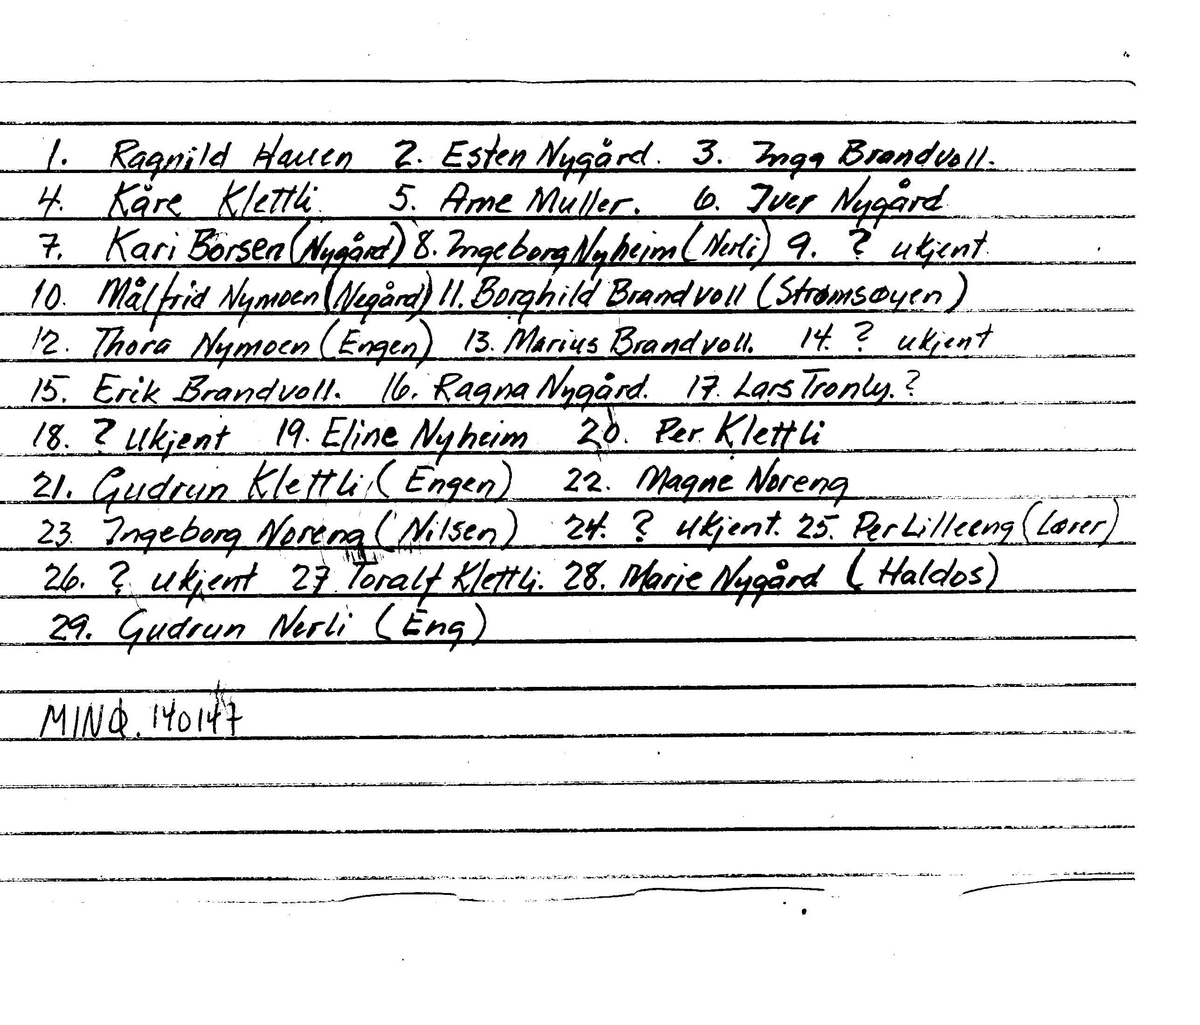 1. Ragnild Hauen 2. Esten Nygård. 3. Inga Brandvoll.
4. Kåre Klettli 5. Arne Muller. 6. Iver Nygård
7. Kari Borsen (Nygård) 8. Ingeborg Nyheim (Nerli) 9. ? ukjent.
10. Målfrid Nymoen (Negård) 11. Borghild Brandvoll (Strømsøyen)
12. Thora Nymoen (Engen) 13. Marius Brandvoll. 14. ? ukjent
15. Erik Brandvoll. 16. Ragna Nygård. 17. Lars Tronly.?
18. ? Ukjent 19. Eline Nyheim 20. Per Klettli
21. Gudrun Klettli (Engen) 22. Magne Noreng
23. Ingeborg Noreng (Nilsen) 24. ? ukjent. 25. Per Lilleeng (Lærer)
26. ? ukjent 27 Toralf Klettli. 28. Marie Nygård (Haldos)
29. Gudrun Nerli (Eng)
MINØ. 140147